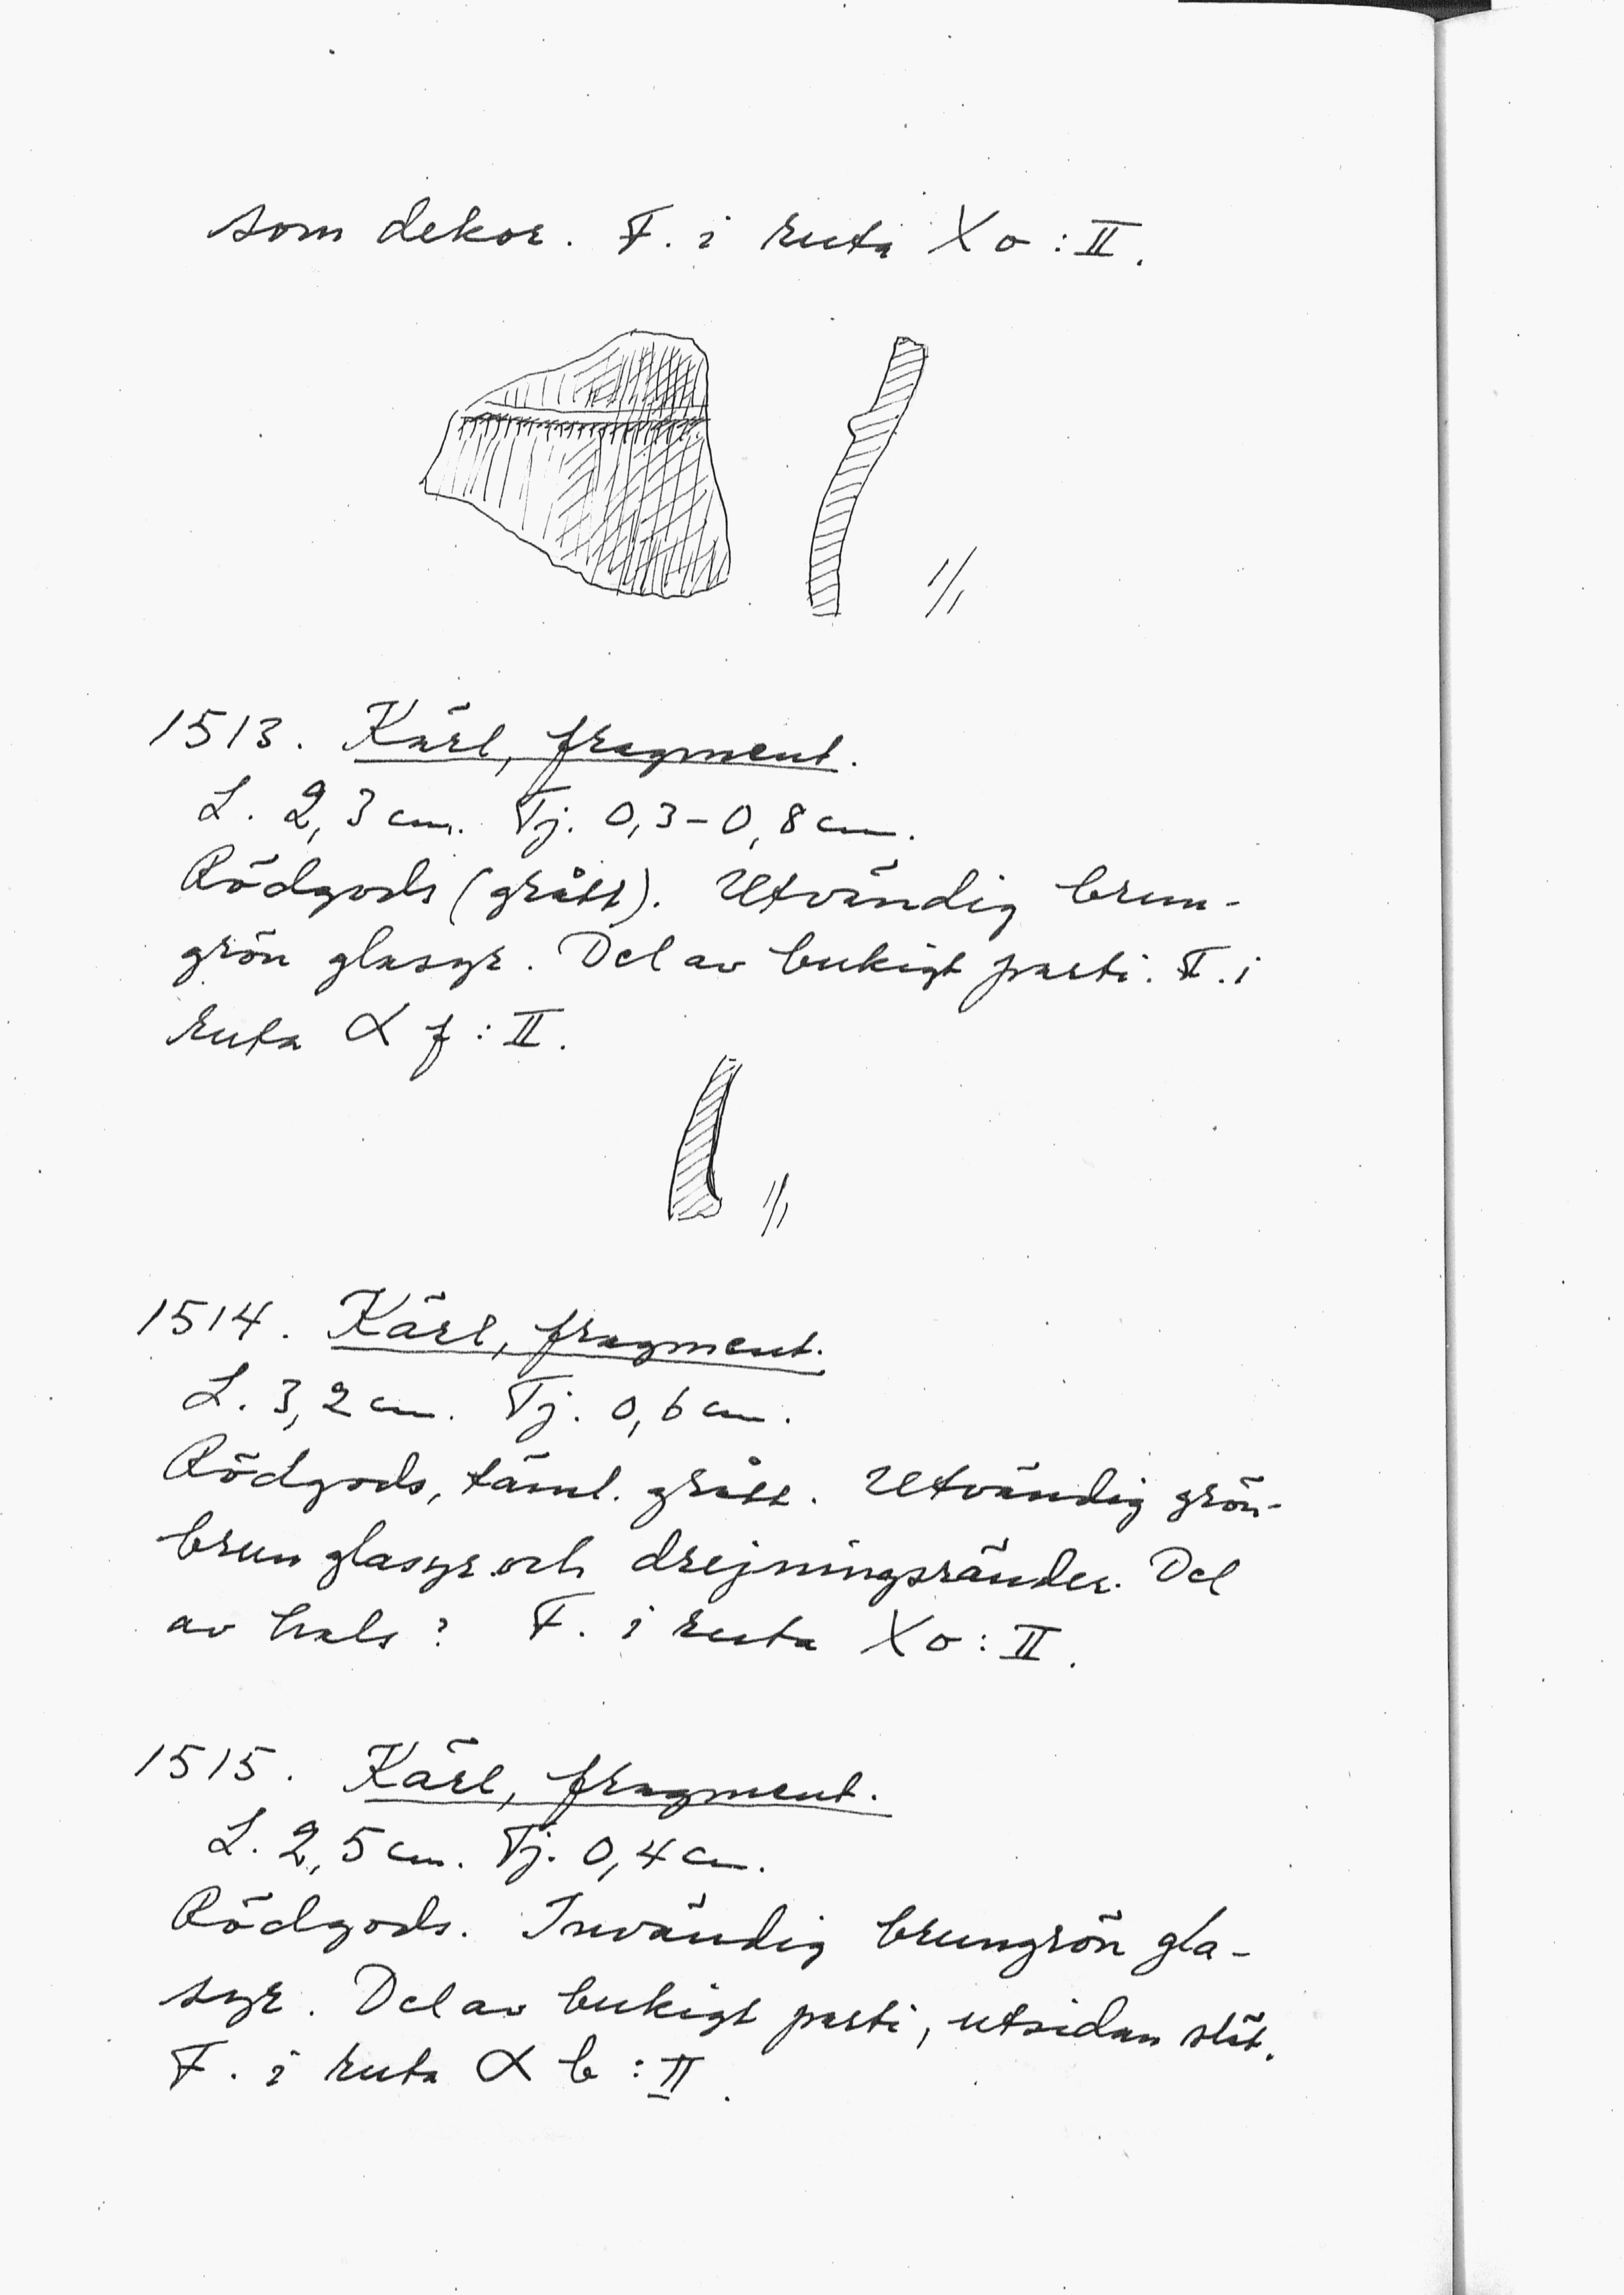 som dekor. F. i ruta Xo:II.
1/1
1513. Kärl, fragment.
L. 2,3 cm. Tj. 0,3-0,8 cm.
Rödgods (grått). Utvändig brun-
grön glasyr. Del av bukigt parti. F. i
ruta α f:II.
1/1
1514. Kärl, fragment.
L. 3,2 cm. Tj. 0,6 cm.
Rödgods, täml. grått. Utvändig grön-
brun glasyr och drejningsränder. Del
av hals? F. i ruta Xo:II.
1515. Kärl, fragment.
L. 2,5 cm. Tj. 0,4 cm.
Rödgods. Invändig brungrön gla-
syr. Del av bukigt parti, utsidan slät.
F. i ruta α b:II.